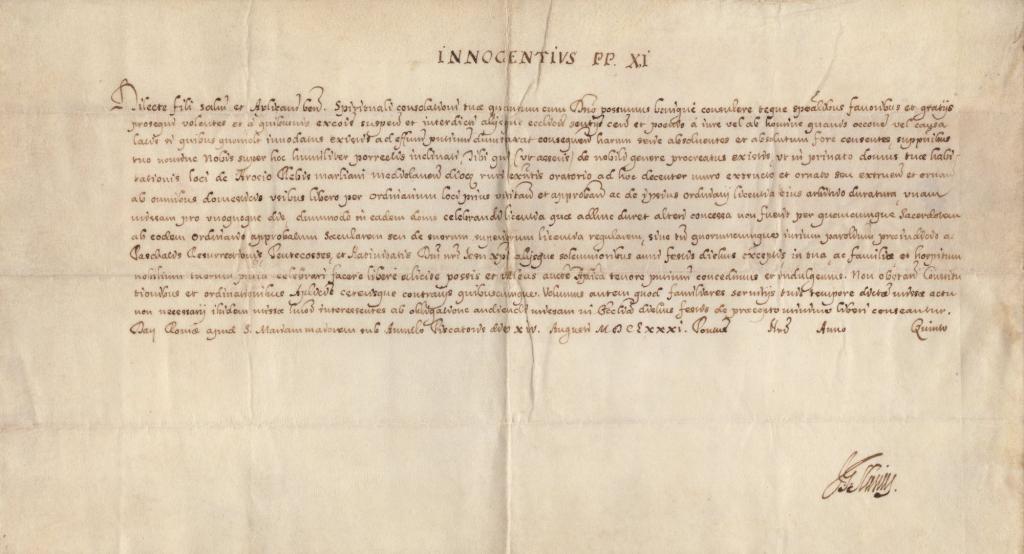 INNOCENTIVS PP. XI
Dilecte fili salut et Aplicam ben. Spirituali consolationi tuæ quantum cum Dno possumus benigne consulere teque spcalibus favoribus et gratijs
prosequi volentes et à quibusvis excois suspens et interdicti alijsque ecclicis sentijs cens et poenis à iure vel ab homine quavis occone vel causa
latis si quibus quomolt innodatus existis ad effum pntium dumtaxat consequen harum serie absolventes et absolutum fore censentes, supplnibus
tuo nomine Nobis super hoc humiliter porrectis inclinati, Tibi qui (ut asseris) de nobili genere procreatus existis, ut in privato domus tuæ habi-
tationis loci de Arosio Plebis Marliani mediolanen dioec oratorio ad hoc decenter muro extructo et ornato seu extruen et ornan
ab omnibus domesticis usibus libero per Ordinarium loci prius visitan et approban ac de ipsius ordinarij licentia eius arbitrio duratura, unam
missam pro unoquoque die dummodo in eadem domo celebrandi licentia quæ adhuc duret alteri concessa non fuerit per quemcumque Sacerdotem
ab eodem ordinario approbatum Sæcularem seu de suorum superiorum licentia regularem, sine tn quorumcumque iurium parolium præiudicio ac
Paschatis Resurrectionis, Pentecostes, et Nativitatis Dni nri Jesu Xpi alijsque solemnioribus anni festis diebus exceptis in tua ac familiæ et hospitum
nobilium tuorum pntia celebrari facere liberè et licite possis et valeas aucte Aplica tenore pntium concedimus et indulgemus. Non obstan Constitu-
tionibus et ordinationibus Aplicis ceterisque contrarijs quibuscumque. Volumus autem quod familiares servitijs tuis tempore dictæ missæ actu
non necessarij ibidem missæ huiusmodi interessentes ab obligatione audiendi missam in Ecclia diebus festis de præcepto minime liberi censeantur.
Dat Romæ apud S. Mariam maiorem sub Annulo Piscatoris die XIV. Augusti M.DC.LXXXI. Pontus Nri Anno Quinto